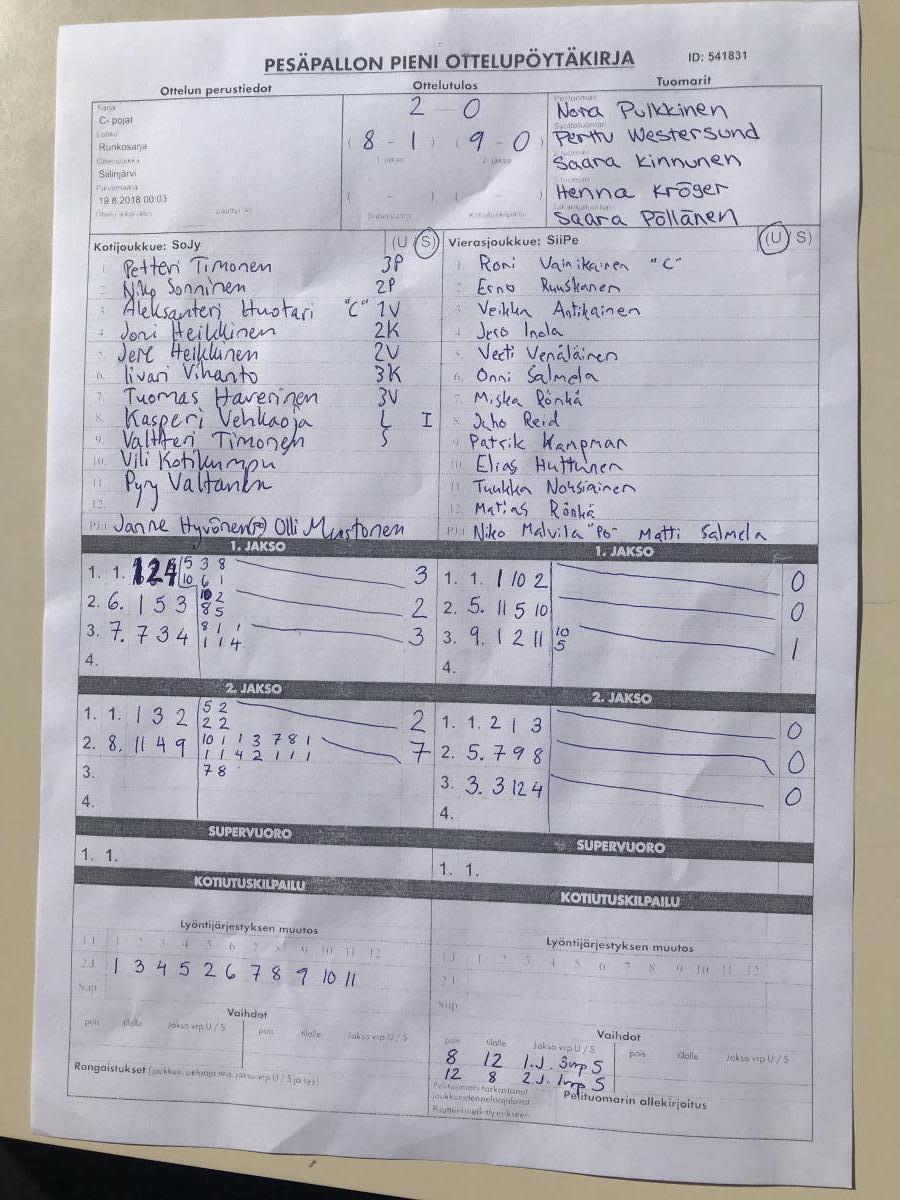 PESÄPALLON PIENI OTTELUPÖYTÄKIRJA ID: 541831
Ottelun perustiedot Ottelutulos Tuomarit
Sarja
C- pojat
Lohko
Runkosarja
Ottelupaikka
Siilinjärvi
Päivämäärä
19.8.2018 00:03
2 - 0
(8 - 1) (9 - 0)
1. jakso 2. jakso
( - ) ( - )
Supervuoro Kotiutuskilpailu
Pelituomari
Nora Pulkkinen
Syöttötuomari
Perttu Westersund
Saara Kinnunen
Henna Kröger
Takarajatuomari
Saara Pöllänen
Kotijoukkue: SoJy (U S)
1. Petteri Timonen 3P
2. Niko Sonninen 2P
3. Aleksanteri Huotari "C" 1V
4. Joni Heikkinen 2K
5. Jere Heikkinen 2V
6. Iivari Vihanto 3K
7. Tuomas Haverinen 3V
8. Kasperi Vehkaoja L I
9. Valtteri Timonen S
10. Vili Kotikumpu
11. Pyry Valtanen
12.
PJ:t Janne Hyvönen(PO) Olli Mustonen
Vierasjoukkue: SiiPe (U S)
1. Roni Vainikainen "C"
2. Erno Ruuskanen
3. Veikka Antikainen
4. Jero Inola
5. Veeti Venäläinen
6. Onni Salmela
7. Miska Rönkä
8. Juho Reid
9. Patrik Kampman
10. Elias Huttunen
11. Tuukka Nousiainen
12. Matias Rönkä
PJ:t Niko Malvila "Po" Matti Salmela
1. JAKSO
1. 1. 124 5 3 8 3
10 6 1
2. 6. 1 5 3 10 2 2
8 5
3. 7. 7 3 4 8 1 1 3
1 1 4
4.
1. JAKSO
1. 1. 1 10 2 0
2. 5. 11 5 10 0
3. 9. 1 2 11 10 1
5
4.
2. JAKSO
1. 1. 1 3 2 5 2 2
2 2
2. 8. 11 4 9 10 1 1 3 7 8 1 7
1 1 4 2 1 1 1
3. 7 8
4.
2. JAKSO
1. 1. 2 1 3 0
2. 5. 7 9 8 0
3. 3. 3 12 4 0
4.
SUPERVUORO
1. 1.
SUPERVUORO
1. 1.
KOTIUTUSKILPAILU
Lyöntijärjestyksen muutos
1J 1 2 3 4 5 6 7 8 9 10 11 12
2J 1 3 4 5 2 6 7 8 9 10 11
Sup
Vaihdot
pois tilalle Jakso vrp U / S pois tilalle Jakso vrp U / S
Rangaistukset (joukkue, pelaaja nro, jakso vrp U / S ja syy)
KOTIUTUSKILPAILU
Lyöntijärjestyksen muutos
1J 1 2 3 4 5 6 7 8 9 10 11 12
2J
Sup
Vaihdot
pois tilalle Jakso vrp U / S pois tilalle Jakso vrp U / S
8 12 1.J. 3vrp S
12 8 2.J. 1vrp S
Pelituomari tarkastanut
joukkuetiedot
Pelituomarin allekirjoitus